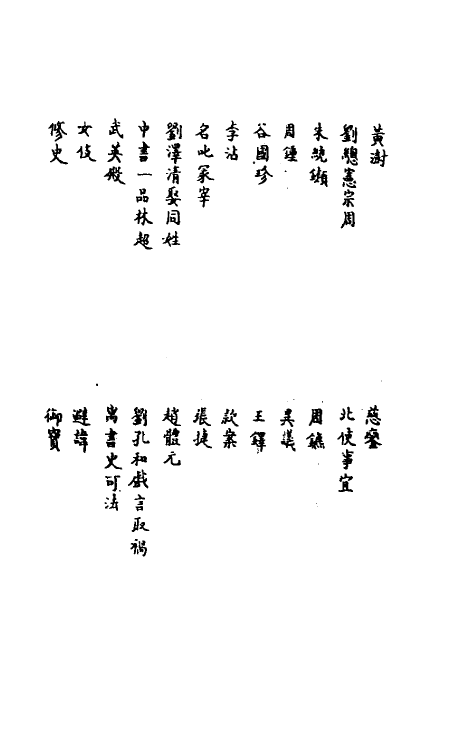 黃澍
慈鑾
劉總憲宗周
北使事宜
朱統
周鑣
周鍾
異議
谷國珍
王鐸
李沾
款案
名叱冢宰
張捷
劉澤清娶同姓
趙體元
中書一品林超
劉孔和戲言取禍
武英殿
寓書史可法
女伎
避諱
修史
御寶